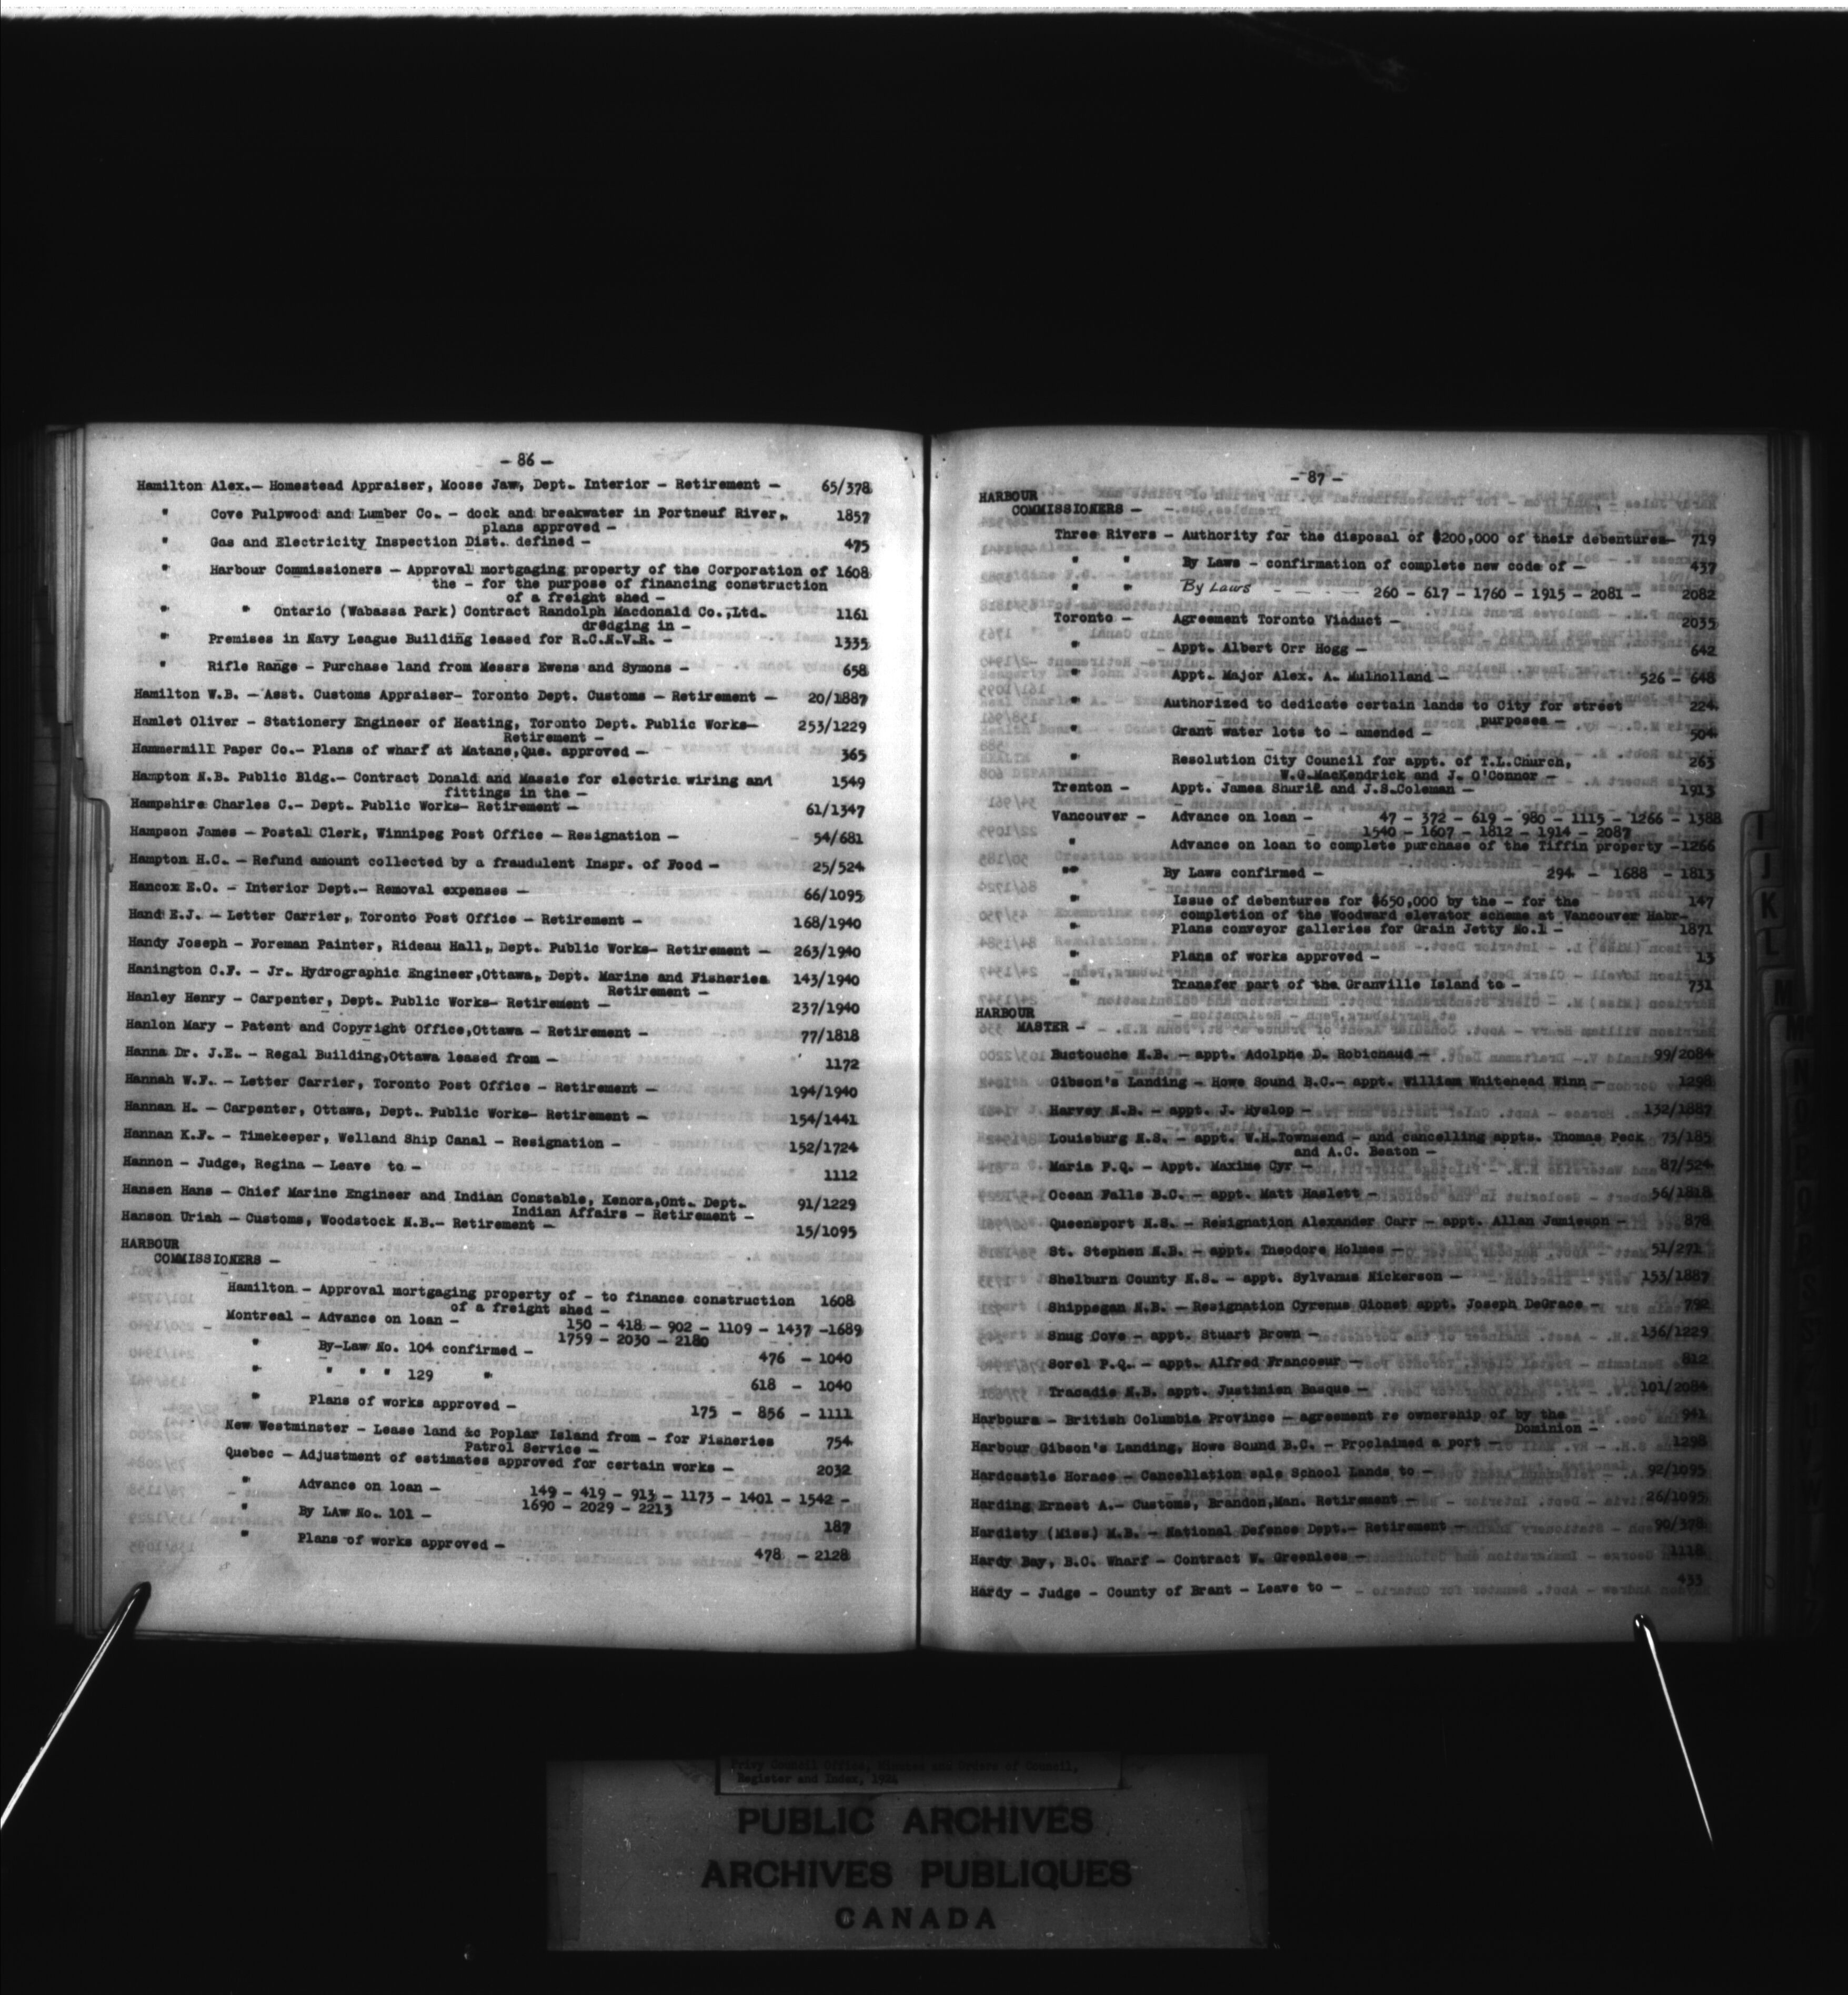 - 86 -
Hamilton Alex.- Homestead Appraiser, Moose Jaw, Dept. Interior - Retirement - 65/378
" Cove Pulpwood and Lumber Co. - dock and breakwater in Portneuf River, 1857
plans approved -
" Gas and Electricity Inspection Dist. defined - 475
" Harbour Commissioners - Approval mortgaging property of the Corporation of 1608
the - for the purpose of financing construction
of a freight shed -
" " Ontario (Wabassa Park) Contract Randolph Macdonald Co.,Ltd. 1161
dredging in -
" Premises in Navy League Building leased for R.C.N.V.R. - 1335
" Rifle Range - Purchase land from Messrs Ewens and Symons - 658
Hamilton W.B. - Asst. Customs Appraiser- Toronto Dept. Customs - Retirement - 20/1887
Hamlet Oliver - Stationery Engineer of Heating, Toronto Dept. Public Works- 253/1229
Retirement -
Hammermill Paper Co.- Plans of wharf at Matane,Que. approved - 365
Hampton N.B. Public Bldg.- Contract Donald and Massie for electric wiring and 1549
fittings in the -
Hampshire Charles C.- Dept. Public Works- Retirement - 61/1347
Hampson James - Postal Clerk, Winnipeg Post Office - Resignation - 54/681
Hampton H.C. - Refund amount collected by a fraudulent Inspr. of Food - 25/524
Hancox E.O. - Interior Dept.- Removal expenses - 66/1095
Hand E.J. - Letter Carrier, Toronto Post Office - Retirement - 168/1940
Handy Joseph - Foreman Painter, Rideau Hall, Dept. Public Works- Retirement - 263/1940
Hanington C.F. - Jr. Hydrographic Engineer,Ottawa, Dept. Marine and Fisheries 143/1940
Retirement -
Hanley Henry - Carpenter, Dept. Public Works- Retirement - 237/1940
Hanlon Mary - Patent and Copyright Office,Ottawa - Retirement - 77/1818
Hanna Dr. J.E. - Regal Building,Ottawa leased from - 1172
Hannah W.F. - Letter Carrier, Toronto Post Office - Retirement - 194/1940
Hannan H. - Carpenter, Ottawa, Dept. Public Works- Retirement - 154/1441
Hannan K.F. - Timekeeper, Welland Ship Canal - Resignation - 152/1724
Hannon - Judge, Regina - Leave to - 1112
Hansen Hans - Chief Marine Engineer and Indian Constable, Kenora,Ont. Dept. 91/1229
Indian Affairs - Retirement -
Hanson Uriah - Customs, Woodstock N.B.- Retirement - 15/1095
HARBOUR
COMMISSIONERS -
Hamilton - Approval mortgaging property of - to finance construction 1608
of a freight shed -
Montreal - Advance on loan - 150 - 418 - 902 - 1109 - 1437 -1689
1759 - 2030 - 2180
" By-Law No. 104 confirmed - 476 - 1040
" " " " 129 " 618 - 1040
" Plans of works approved - 175 - 856 - 1111
New Westminster - Lease land &c Poplar Island from - for Fisheries 754
Patrol Service -
Quebec - Adjustment of estimates approved for certain works - 2032
" Advance on loan - 149 - 419 - 913 - 1173 - 1401 - 1542 -
1690 - 2029 - 2213
" By LAw No. 101 - 187
" Plans of works approved - 478 - 2128
- 87 -
HARBOUR
COMMISSIONERS -
Three Rivers - Authority for the disposal of $200,000 of their debentures- 719
" " By Laws - confirmation of complete new code of - 437
" " By Laws - - - - 260 - 617 - 1760 - 1915 - 2081 - 2082
Toronto - Agreement Toronto Viaduct - 2035
" - Appt. Albert Orr Hogg - 642
" Appt. Major Alex. A. Mulholland - 526 - 648
" Authorized to dedicate certain lands to City for street 224
purposes -
" Grant water lots to - amended - 504
" Resolution City Council for appt. of T.L.Church, 263
W.G.MacKendrick and J. O'Connor -
Trenton - Appt. James Shurie and J.S.Coleman - 1913
Vancouver - Advance on loan - 47 - 372 - 619 - 980 - 1115 - 1266 - 1388
- 1540 - 1607 - 1812 - 1914 - 2087
" Advance on loan to complete purchase of the Tiffin property -1266
" By Laws confirmed - 294 - 1688 - 1813
" Issue of debentures for $650,000 by the - for the 147
completion of the Woodward elevator scheme at Vancouver Habr-
" Plans conveyor galleries for Grain Jetty No.1 - 1871
" Plans of works approved - 13
" Transfer part of the Granville Island to - 731
HARBOUR
MASTER -
Buctouche N.B. - appt. Adolphe D. Robichaud - 99/2084
Gibson's Landing - Howe Sound B.C.- appt. William Whitehead Winn - 1298
Harvey N.B. - appt. J. Hyslop - 132/1887
Louisburg N.S. - appt. W.H.Townsend - and cancelling appts. Thomas Peck 73/185
and A.C. Beaton -
Maria P.Q. - Appt. Maxime Cyr - 87/524
Ocean Falls B.C. - appt. Matt Haslett - 56/1818
Queensport N.S. - Resignation Alexander Carr - appt. Allan Jamieson - 878
St. Stephen N.B. - appt. Theodore Holmes - 51/271
Shelburn County N.S. - appt. Sylvanus Nickerson - 153/1887
Shippegan N.B. - Resignation Cyrenus Gionet appt. Joseph DeGrace - 792
Snug Cove - appt. Stuart Brown - 136/1229
Sorel P.Q. - appt. Alfred Francoeur - 812
Tracadie N.B. appt. Justinien Basque - 101/2084
Harbours - British Columbia Province - agreement re ownership of by the 941
Dominion -
Harbour Gibson's Landing, Howe Sound B.C. - Proclaimed a port - 1298
Hardcastle Horace - Cancellation sale School Lands to - 92/1095
Harding Ernest A.- Customs, Brandon,Man. Retirement - 26/1095
Hardisty (Miss) M.B. - National Defence Dept.- Retirement - 90/378
Hardy Bay, B.C. Wharf - Contract W. Greenlees - 1118
Hardy - Judge - County of Brant - Leave to - 433
I
J
K
L
M
Privy Council Office, Minutes and Orders of Council,
Register and Index, 1924
PUBLIC ARCHIVES
ARCHIVES PUBLIQUES
CANADA